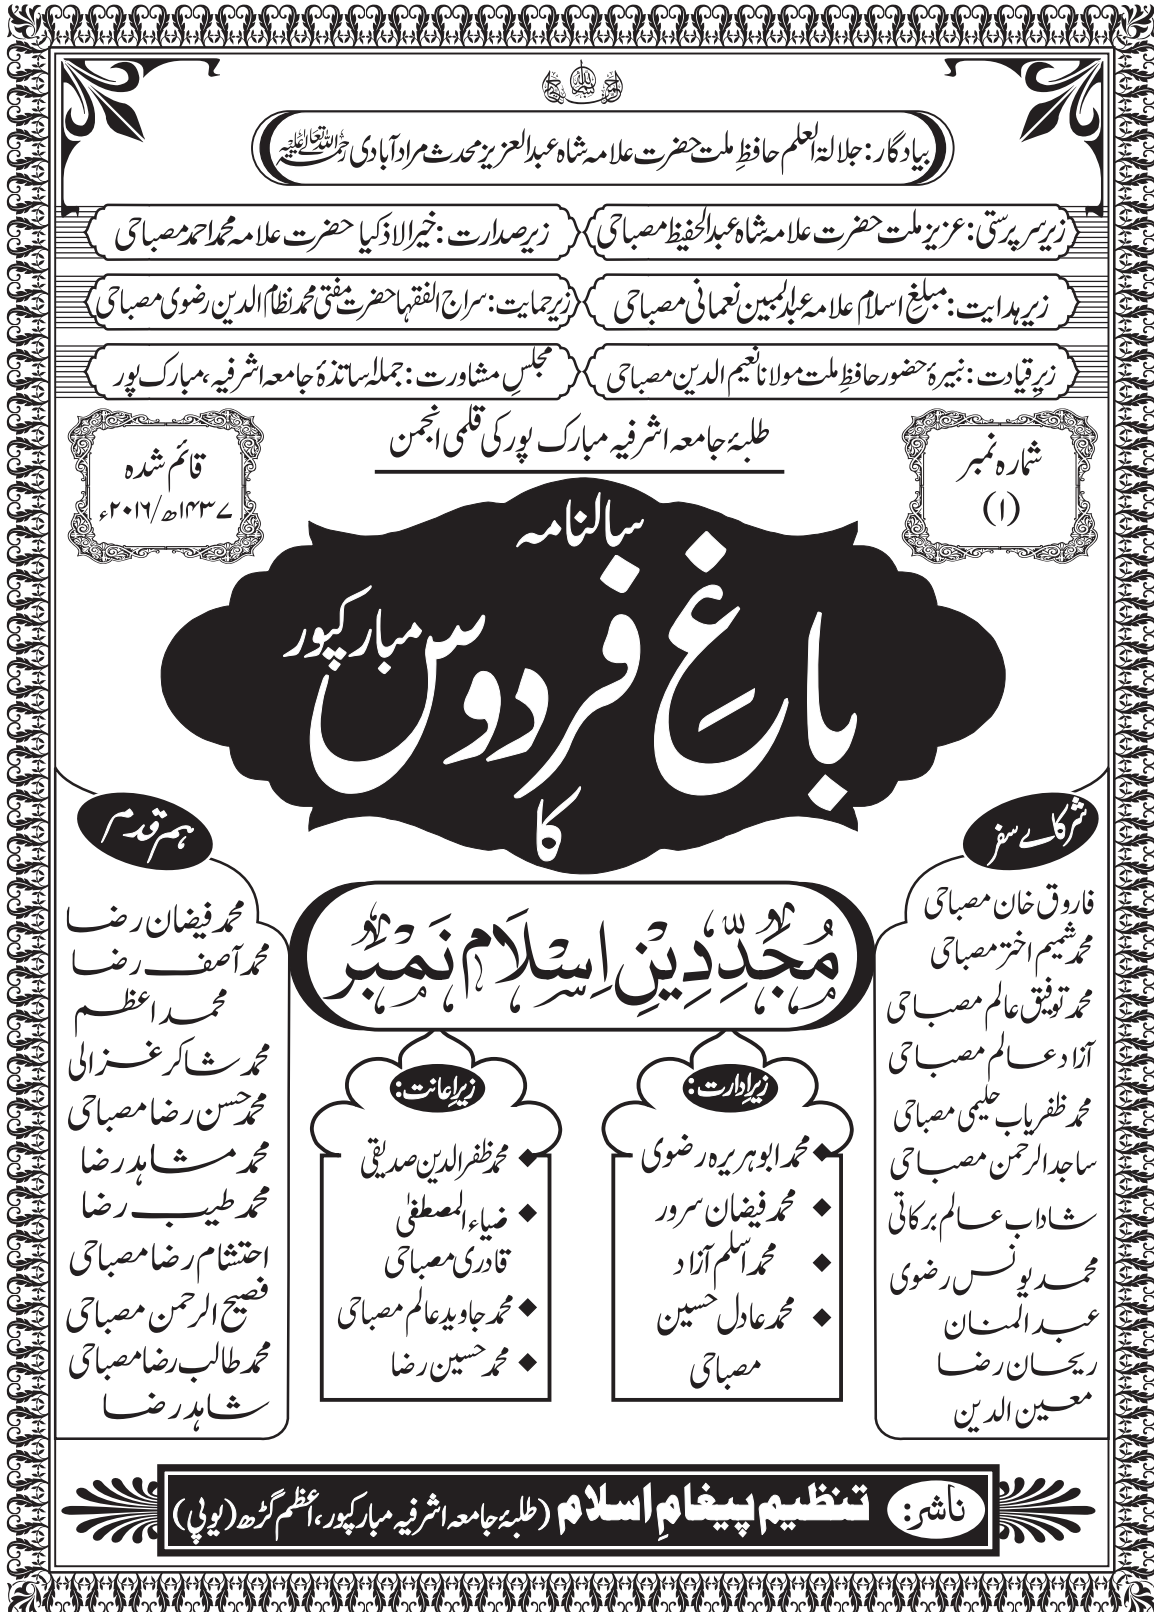 بسم اللہ الرحمن الرحیم
بیادگار: جلالۃ العلم حافظِ ملت حضرت علامہ شاہ عبدالعزیز محدث مرادآبادی رحمۃ اللہ تعالیٰ علیہ
زیر سرپرستی: عزیز ملت حضرت علامہ شاہ عبدالحفیظ مصباحی
زیر صدارت: خیرالاذکیا حضرت علامہ محمد احمد مصباحی
زیر ہدایت: مبلغِ اسلام علامہ عبدالمبین نعمانی مصباحی
زیر حمایت: سراج الفقہا حضرت مفتی محمد نظام الدین رضوی مصباحی
زیرِ قیادت: نبیرۂ حضور حافظِ ملت مولانا نعیم الدین مصباحی
مجلسِ مشاورت: جملہ اساتذۂ جامعہ اشرفیہ، مبارک پور
طلبۂ جامعہ اشرفیہ مبارک پور کی قلمی انجمن
شمارہ نمبر
(۱)
قائم شدہ
۱۴۳۷ھ/۲۰۱۶ء
سالنامہ
باغِ فردوس مبارکپور
کا
مُجَدِّدِینِ اِسْلَام نَمْبَر
شرکاے سفر
فاروق خان مصباحی
محمد شمیم اختر مصباحی
محمد توفیق عالم مصباحی
آزاد عالم مصباحی
محمد ظفریاب حلیمی مصباحی
ساجد الرحمن مصباحی
شاداب عالم برکاتی
محمد یونس رضوی
عبدالمنان
ریحان رضا
معین الدین
زیرِ ادارت:
محمد ابوہریرہ رضوی
محمد فیضان سرور
محمد اسلم آزاد
محمد عادل حسین
مصباحی
زیرِ اعانت:
محمد ظفرالدین صدیقی
ضیاء المصطفیٰ
قادری مصباحی
محمد جاوید عالم مصباحی
محمد حسین رضا
ہم قدم
محمد فیضان رضا
محمد آصف رضا
محمد اعظم
محمد شاکر غزالی
محمد حسن رضا مصباحی
محمد مشاہد رضا
محمد طیب رضا
احتشام رضا مصباحی
فصیح الرحمن مصباحی
محمد طالب رضا مصباحی
شاہد رضا
ناشر: تنظیم پیغامِ اسلام (طلبۂ جامعہ اشرفیہ مبارکپور، اعظم گڑھ (یوپی)